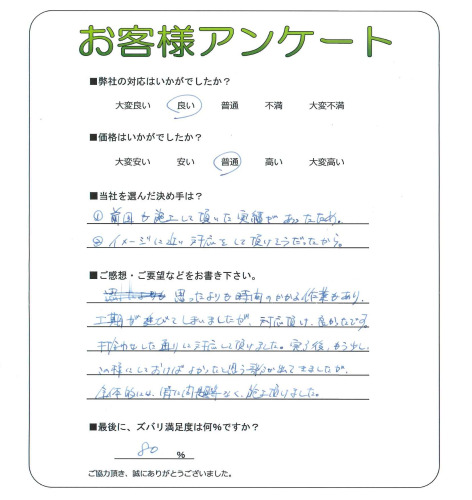 お客様アンケート
■弊社の対応はいかがでしたか？
大変良い 良い 普通 不満 大変不満
■価格はいかがでしたか？
大変安い 安い 普通 高い 大変高い
■当社を選んだ決め手は？
① 前回も施工して頂いた実績があったため。
② イメージに近い対応をして頂けそうだったから。
■ご感想・ご要望などをお書き下さい。
思ったよりも時間のかかる作業もあり、
工期が延びてしまいましたが、対応頂け、良かったです。
打合わせした通りに対応して頂けました。完了後、もう少し、
この様にしておけばよかったと思う部分が出てきましたが、
全体的には、特に問題なく、施工頂けました。
■最後に、ズバリ満足度は何%ですか？
80 %
ご協力頂き、誠にありがとうございました。